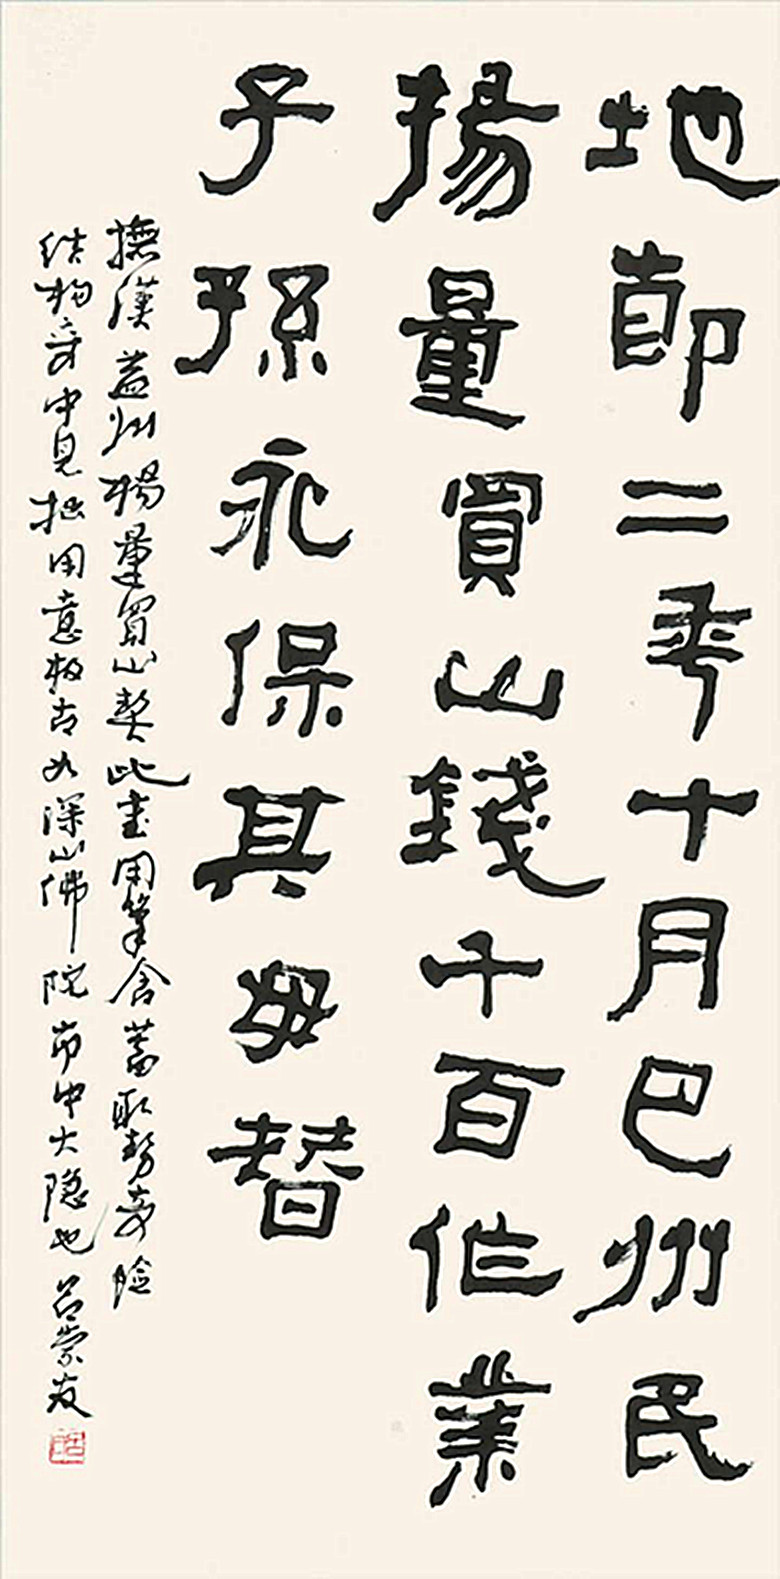 地節二年十月巴州民
揚量買山錢千百作業
子孫永保其毋替
撫漢益州楊量買山契此書用筆含蓄取勢奇險
结构奇中見拙用意极古如深山佛院市中大隐也 吕崇友